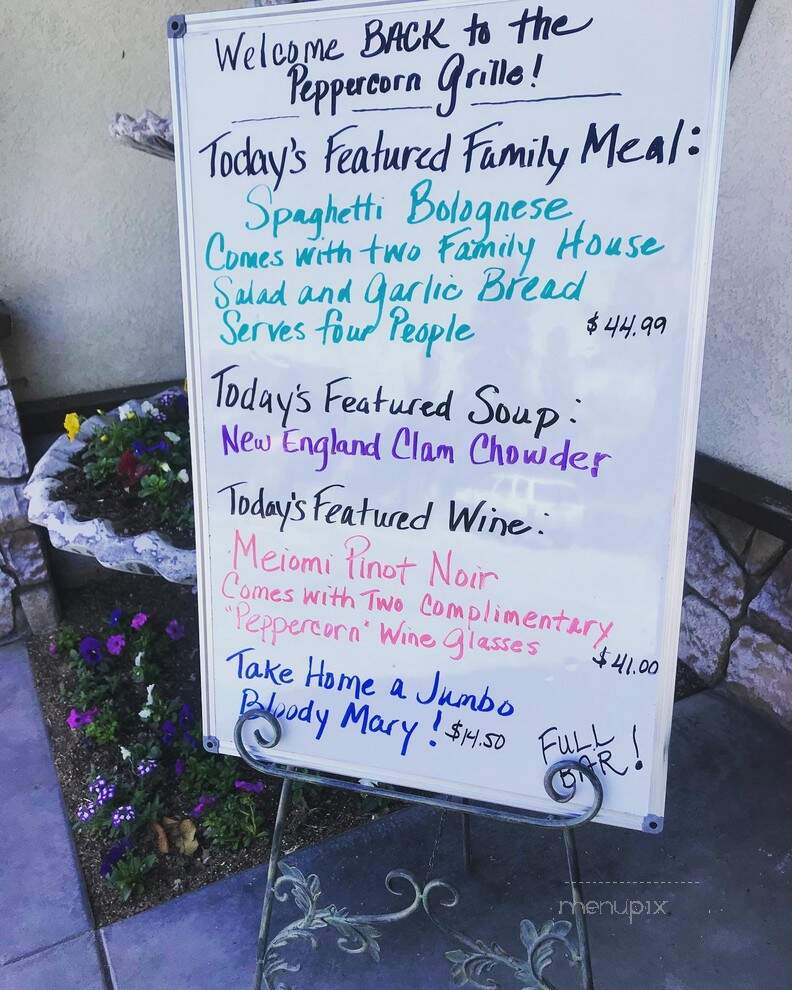 Welcome BACK to the
Peppercorn Grille!
Today's Featured Family Meal:
Spaghetti Bolognese
Comes with two Family House
Salad and Garlic Bread
Serves four People $44.99
Today's Featured Soup:
New England Clam Chowder
Today's Featured Wine:
Meiomi Pinot Noir
Comes with Two Complimentary
"Peppercorn" Wine Glasses
$41.00
Take Home a Jumbo
Bloody Mary! $14.50
FULL
BAR!
menupix